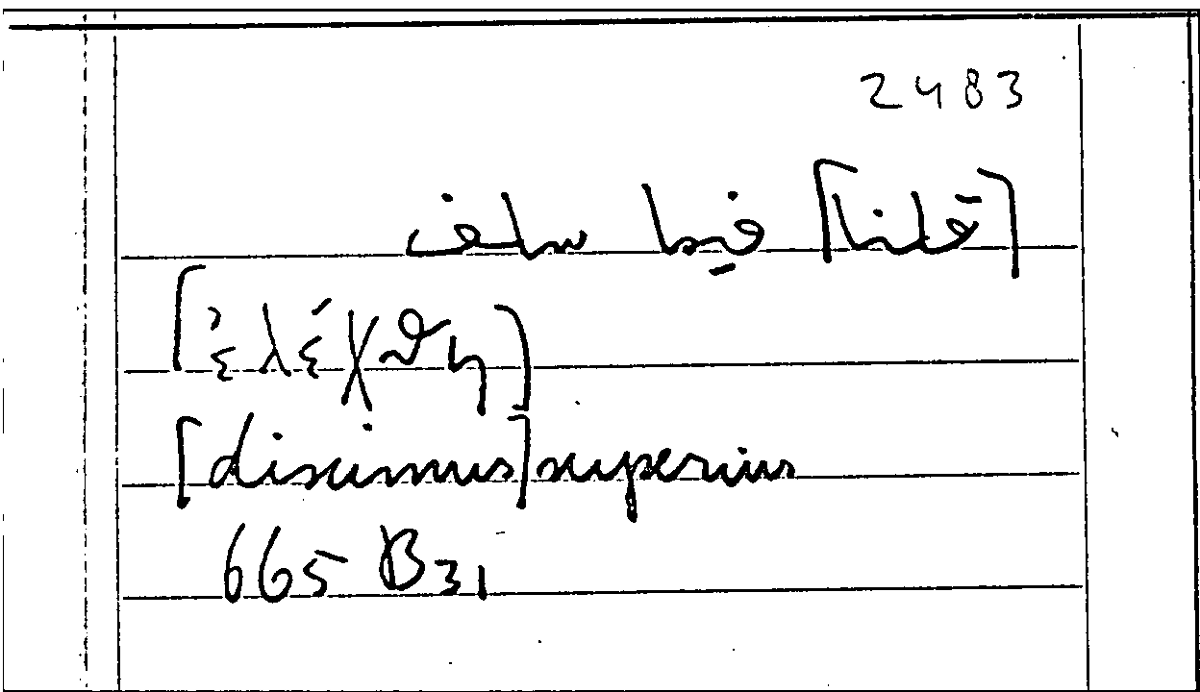 2483
[قلنا] فيما سلف
[ἐλέχθη]
[diximus] superius
665 B31